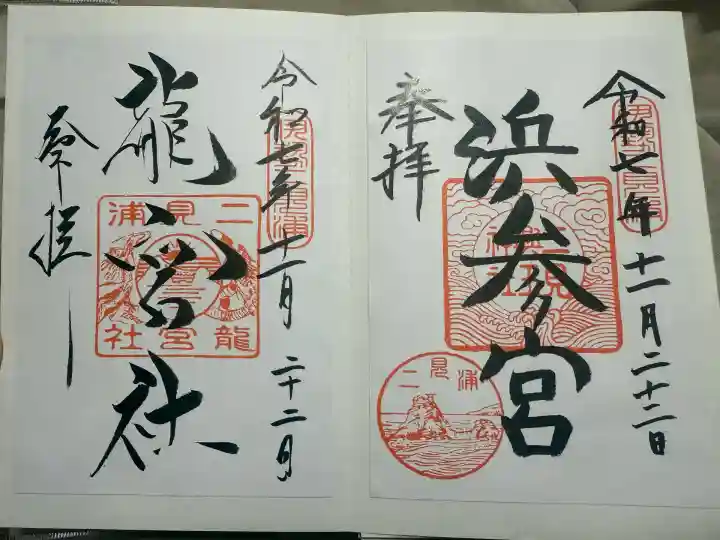 令和七年十一月二十二日
浜参宮
奉拝
二見浦
令和七年十一月二十二日
龍宮社
奉拝
二見浦
龍宮社